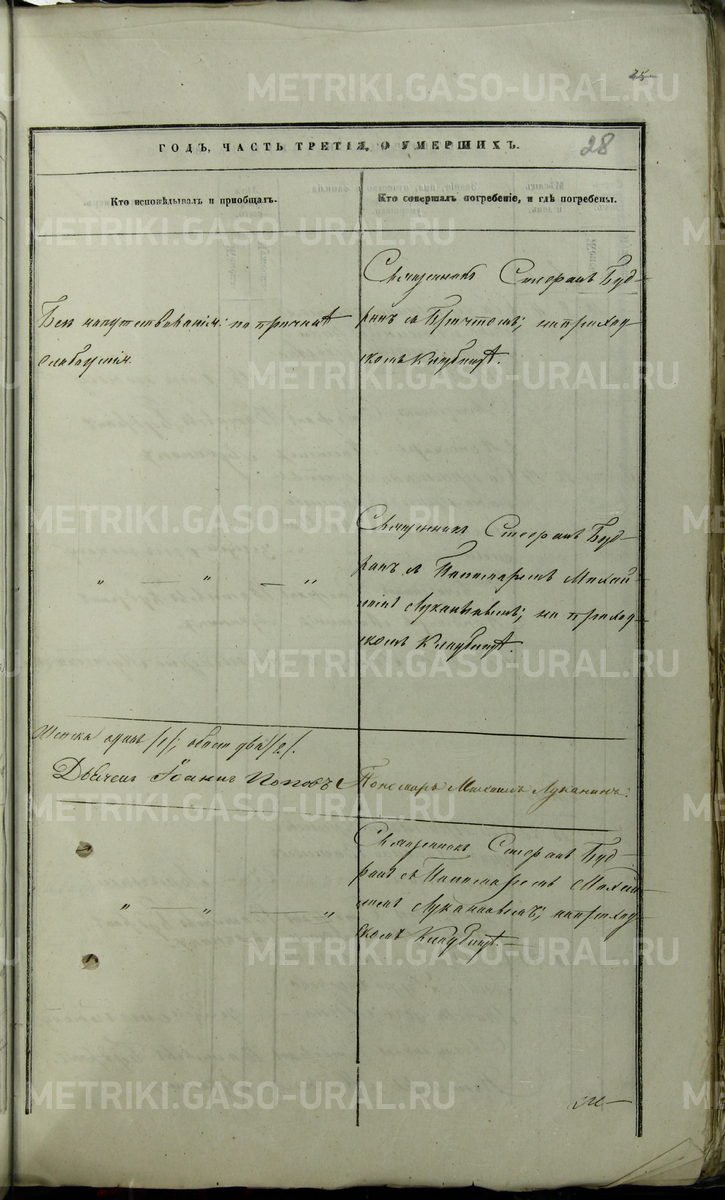 METRIKI.GASO-URAL.RU
28
ГОДЪ, ЧАСТЬ ТРЕТІЯ, О УМЕРШИХЪ.
Кто исповѣдывалъ и пріобщалъ.
Кто совершалъ погребеніе, и гдѣ погребены.
Безъ напутствованія: по причинѣ
слабоумія.
Священникъ Стефанъ Буд-
ринъ съ Причтомъ; на приход-
скомъ кладбищѣ.
" — " — "
Священникъ Стефанъ Буд-
ринъ съ Пономаремъ Михаи-
ломъ Луканинымъ; на приход-
скомъ кладбищѣ.
женска одинъ /1/; обоего два /2/.
Дьячекъ Іоаннъ Поповъ
Пономарь Михаилъ Луканинъ.
" — " — "
Священникъ Стефанъ Буд-
ринъ съ Пономаремъ Михаи-
ломъ Луканинымъ; на приход-
скомъ кладбищѣ.